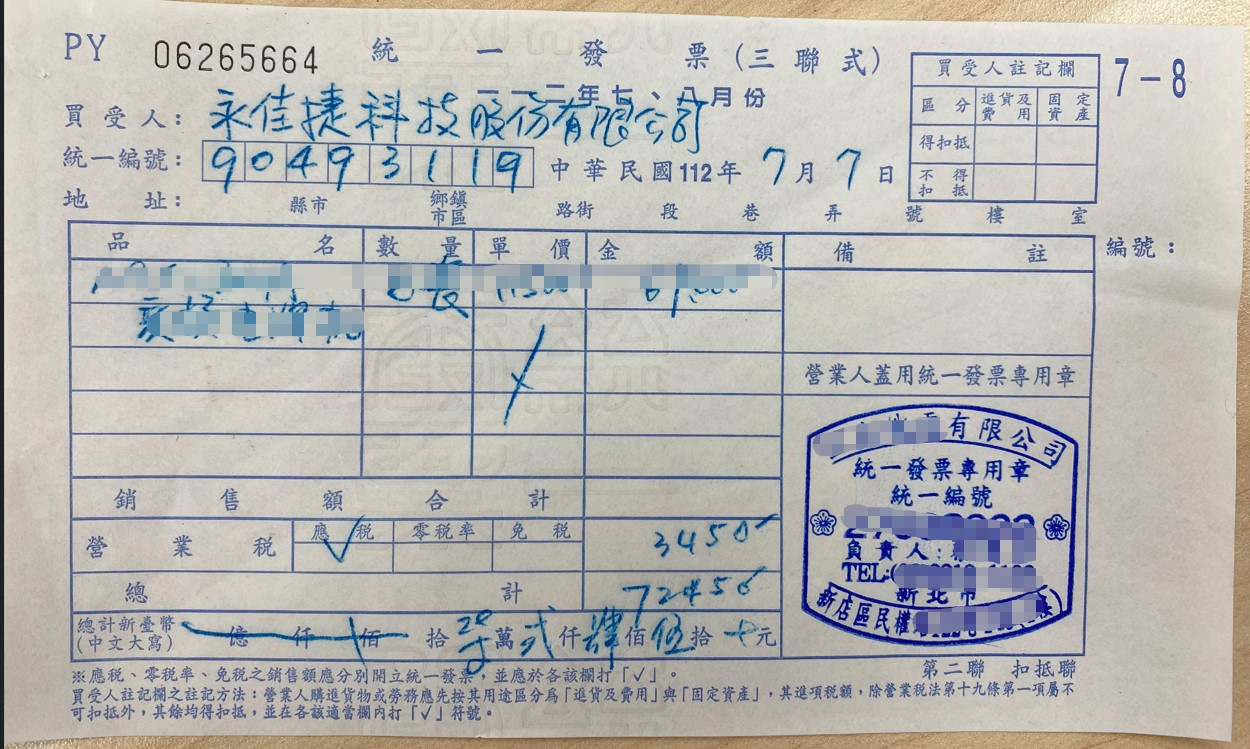 PY 06265664 統一發票(三聯式)
一一二年七、八月份
7-8
買受人註記欄
區分 進貨及費用 固定資產
得扣抵
不得扣抵
買受人: 永佳捷科技股份有限公司
統一編號: 90493119 中華民國112年7月7日
地址: 縣市 鄉鎮市區 路街 段 巷 弄 號 樓 室
品名 數量 單價 金額 備註 編號:
營業人蓋用統一發票專用章
有限公司
統一發票專用章
統一編號
負責人:
TEL:(
新北市
新店區民權
銷售額合計
營業稅 應稅 √ 零稅率 免稅
總計
總計新臺幣(中文大寫) 億 仟 佰 拾 萬 仟 佰 伍 拾 元
第二聯 扣抵聯
※應税、零税率、免税之銷售額應分別開立統一發票,並應於各該欄打「√」。
買受人註記欄之註記方法:營業人購進貨物或勞務應先按其用途區分為「進貨及費用」與「固定資產」,其進項稅額,除營業稅法第十九條第一項屬不
可扣抵外,其餘均得扣抵,並在各該適當欄內打「√」符號。